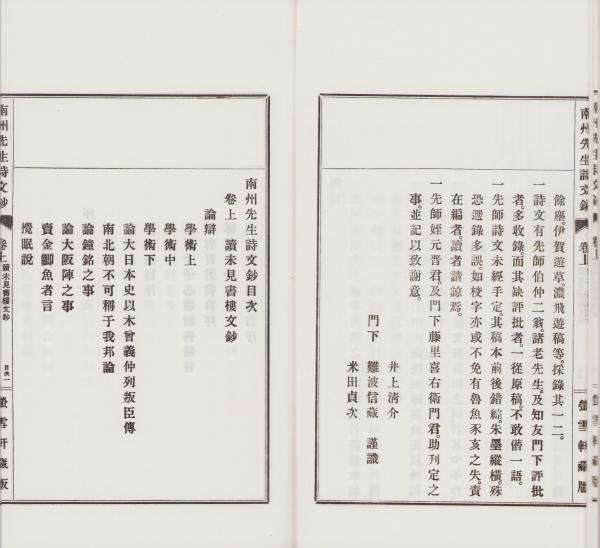 南州先生詩文鈔 卷上
螢雪軒藏版
餘塵。伊賀遊草。濃飛遊稿等。採錄其一二。
一詩文有先師伯仲二翁。諸老先生。及知友門下評批
者。多收錄。而其缺評批者。一從原稿。不敢僭一語。
一先師詩文未經手定。其稿本前後錯綜。朱墨縱橫。殊
恐選錄多誤。如校字亦或不免有魯魚豕亥之失。責
在編者。讀者請諒焉。
一先師姪元晋君。及門下藤里喜右衞門君。助刊定之
事。並記以致謝意。
井上清介
門下 難波信藏 謹識
米田貞次
南州先生詩文鈔目次
卷上 讀未見書樓文鈔
論辯
學術上
學術中
學術下
論大日本史以木曾義仲列叛臣傳
南北朝不可稱于我邦論
論鐘銘之事
論大阪陣之事
賣金鯽魚者言
攪眠說
南州先生詩文鈔 卷上 讀未見書樓文鈔 目次一
螢雪軒藏版